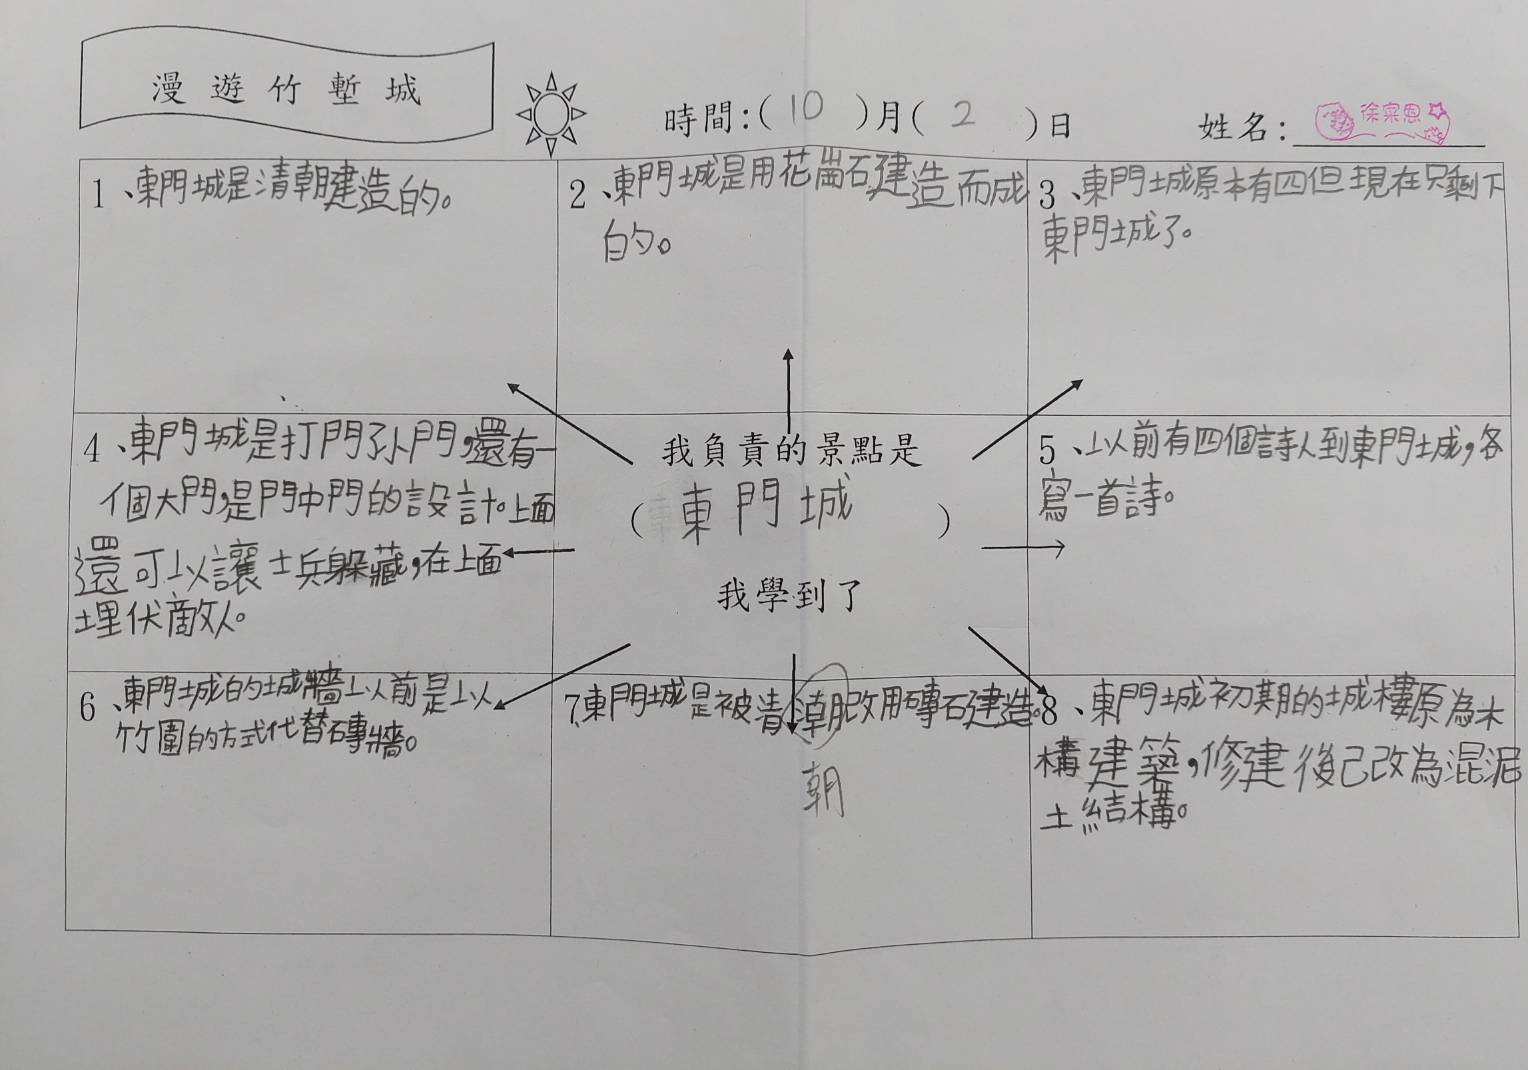 漫遊竹塹城
時間:(10)月(2)日
姓名:徐寀恩
1、東門城是清朝建造的。
2、東門城是用花崗石建造而成
的。
3、東門城原本有四但現在只剩下
東門城了。
4、東門城是打門子小門,還有一
個大門,是門中門的設計。上面
還可以讓士兵躲藏,在上面
埋伏敵人。
我負責的景點是
(東門城)
我學到了
5、以前有四個詩人到東門城,各
寫一首詩。
6、東門城的城牆以前是以
竹圍的方式代替磚牆。
7、東門城是被清潮改用磚石建造。
朝
8、東門城初期的城樓原為木
構建築,修建後已改為混泥
土結構。